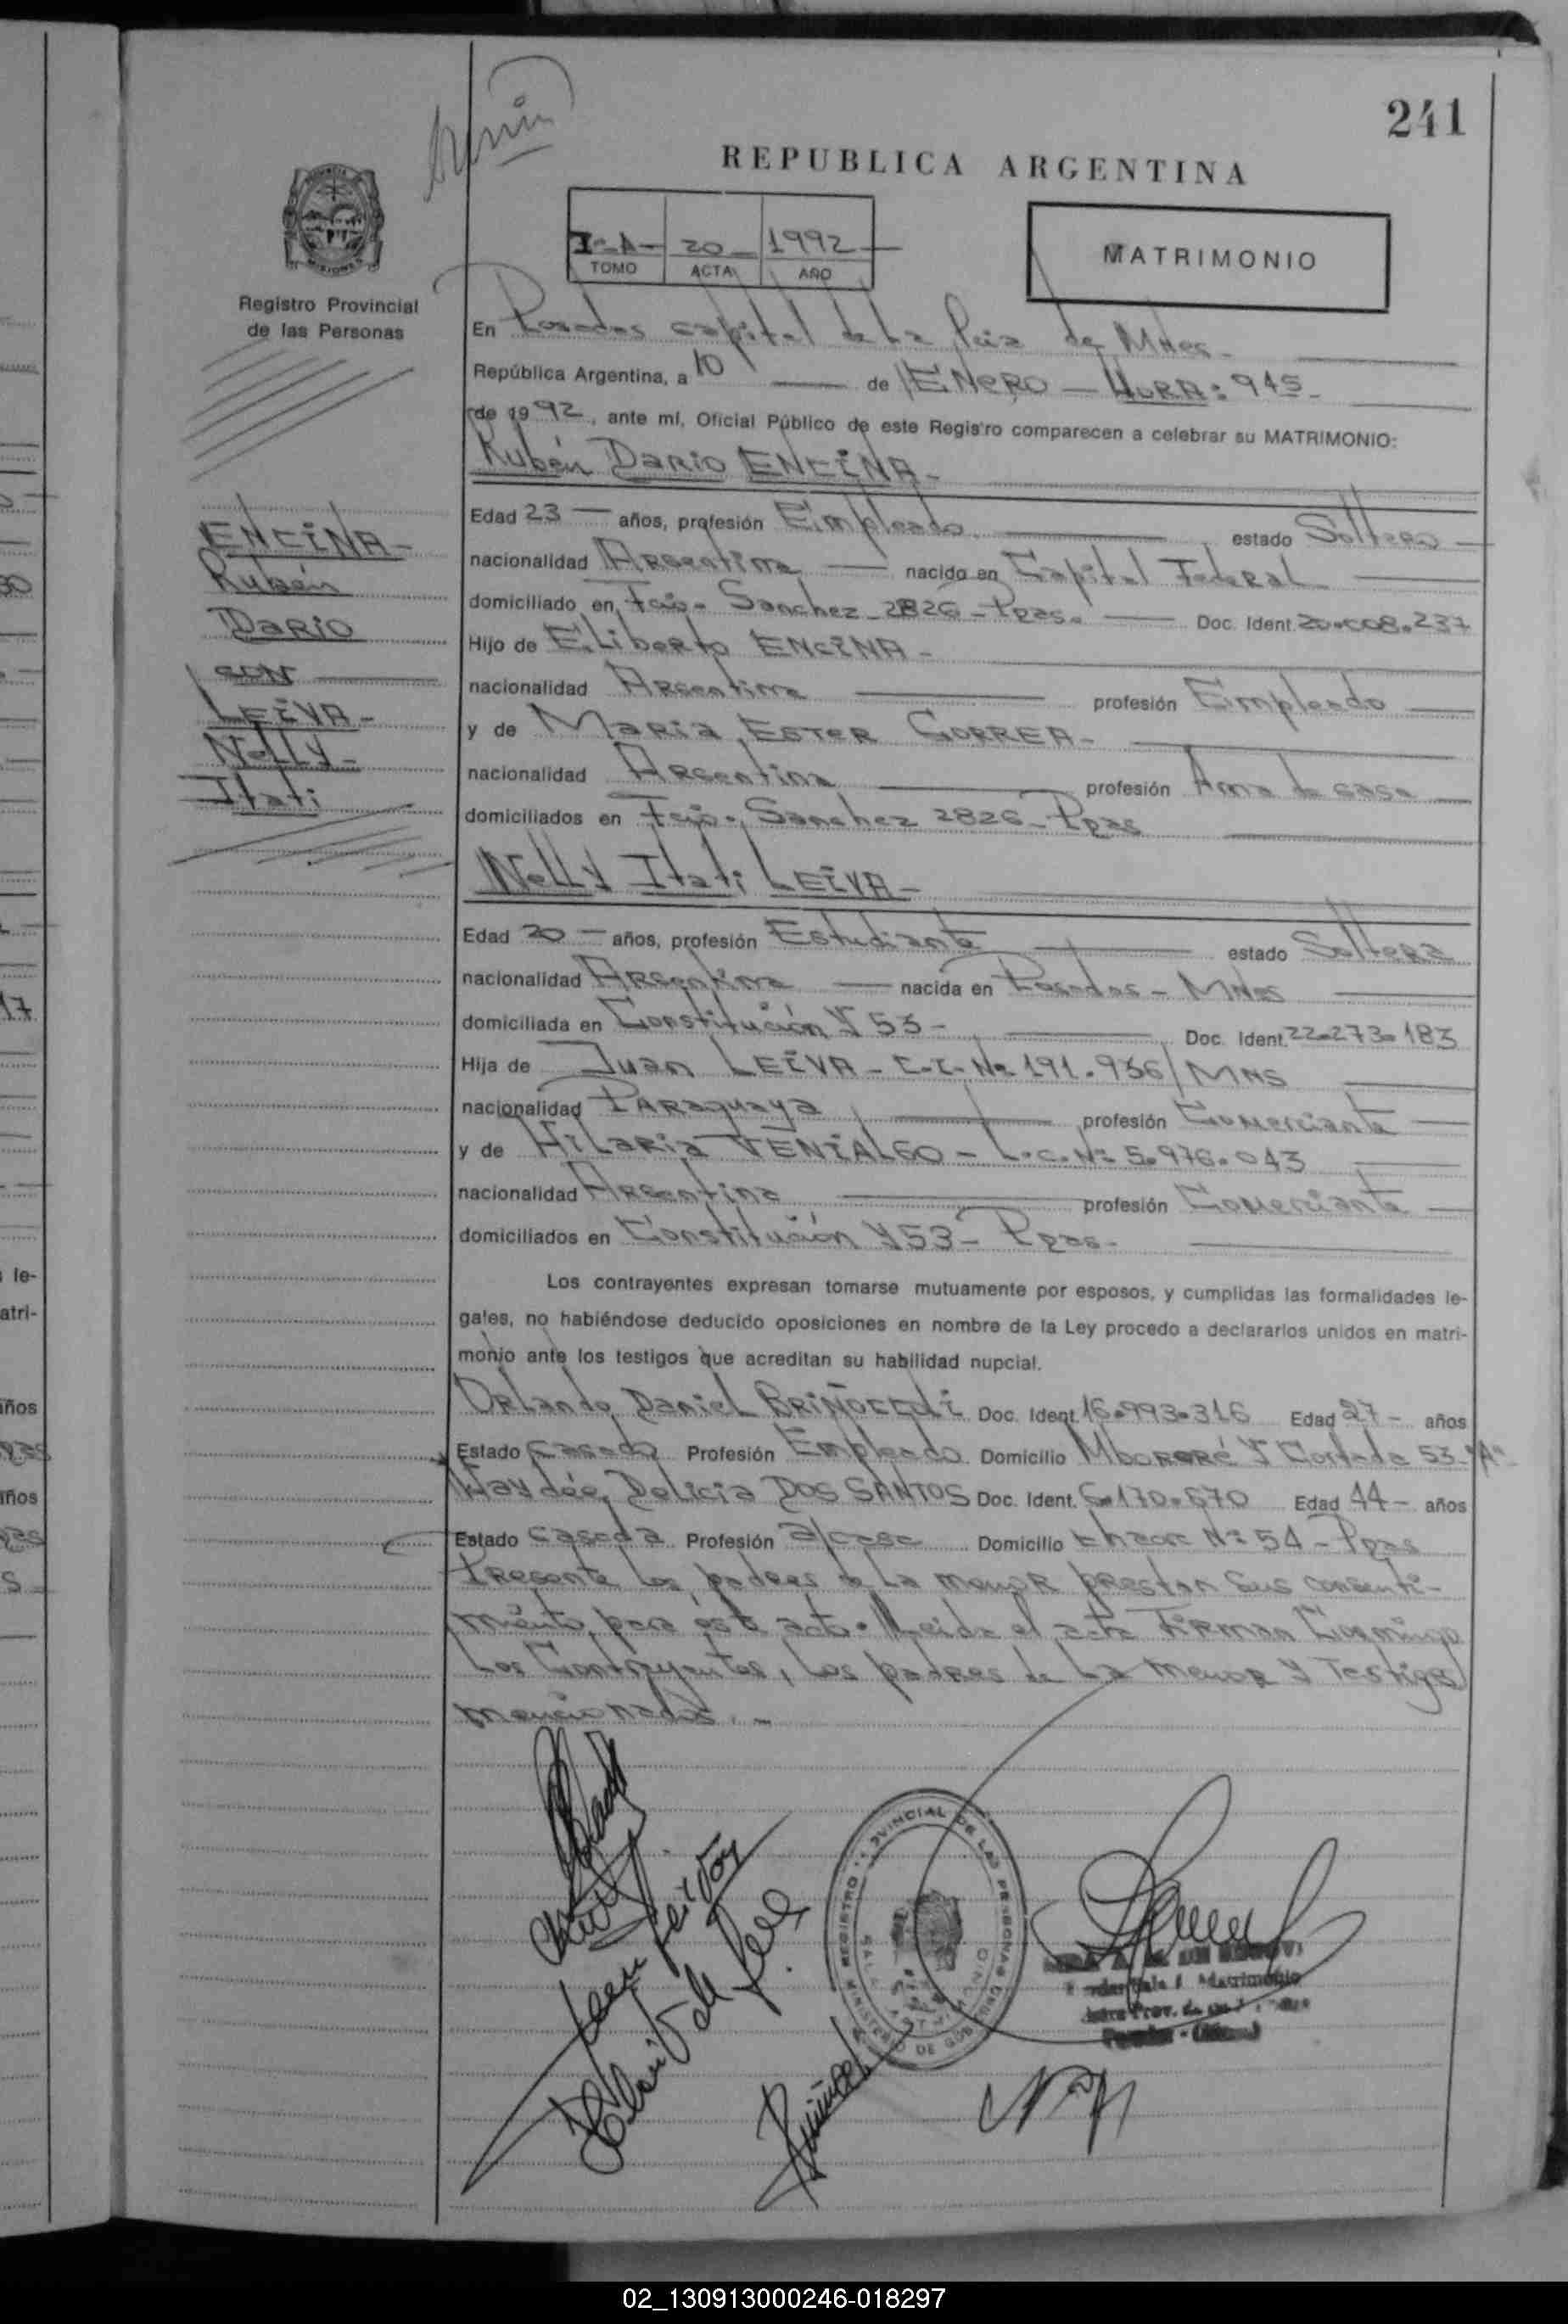 241
REPUBLICA ARGENTINA
1992
TOMO ACTA AÑO
20
MATRIMONIO
Registro Provincial
de las Personas
En Posadas capital de La Pcia de Mnes.
República Argentina, a 10 de ENERO - HORA: 945-
de 1992, ante mí, Oficial Público de este Registro comparecen a celebrar su MATRIMONIO:
Rubén Dario ENCINA-
Edad 23 años, profesión Empleado estado Soltero
nacionalidad Argentina nacido en Capital Federal
domiciliado en Fcio- Sanchez 2826-Ppas. Doc. Ident. 20.008.237
Hijo de Eliberto ENCINA-
nacionalidad Argentina profesión Empleado
y de Maria Ester CORREA-
nacionalidad Argentina profesión Ama de casa
domiciliados en Fcio. Sanchez 2826-Ppas
ENCINA-
Rubén
Dario
CON
LEIVA-
Nelly-
Itati
Nelly Itati LEIVA-
Edad 20 - años, profesión Estudiante estado Soltera
nacionalidad Argentina nacida en Posadas - Mnes
domiciliada en Constitución y 53- Doc. Ident. 22.273.183
Hija de Juan LEIVA - C.I. Nº 191.936/MNS
nacionalidad Paraguaya profesión Comerciante
y de Hilaria VENIALGO - L.C. Nº 5.976.043
nacionalidad Argentina profesión Comerciante
domiciliados en Constitución y 53- Ppas-
Los contrayentes expresan tomarse mutuamente por esposos, y cumplidas las formalidades le-
gales, no habiéndose deducido oposiciones en nombre de la Ley procedo a declararlos unidos en matri-
monio ante los testigos que acreditan su habilidad nupcial.
Orlando Daniel BRIÑOCCOLI Doc. Ident. 16.993.316 Edad 27- años
Estado Casado Profesión Empleado Domicilio Mbororé y Cortada 53-"A"
Haydée Delicia DOS SANTOS Doc. Ident. 6.170.670 Edad 44- años
Estado Casada Profesión a/casa Domicilio Nº 54 - Ppas
Presente los padres de La menor prestan sus consenti-
miento para éste acto. Leida el acta Firman Conmigo
Los Contrayentes, Los padres de La menor y Testigos
mencionados.-
REGISTRO PROVINCIAL DE LAS PERSONAS
MINISTERIO DE GOBIERNO
02_130913000246-018297